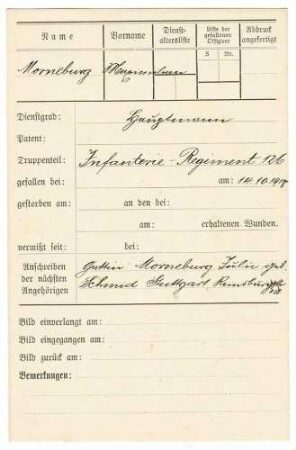 Name Vorname Dienst-altersliste Liste der gefallenen Offiziere Abdruck angefertigt
S Nr.
Morneburg
Dienstgrad: Hauptmann
Patent:
Truppenteil: Infanterie-Regiment 126
gefallen bei: am: 14.10.1917
gestorben am: an den bei:
am: erhaltenen Wunden.
vermißt seit: bei:
Anschreiben Gattin Morneburg Julie geb.
der nächsten Schmid Stuttgart
Angehörigen
Bild einverlangt am:
Bild eingegangen am:
Bild zurück am:
Bemerkungen: